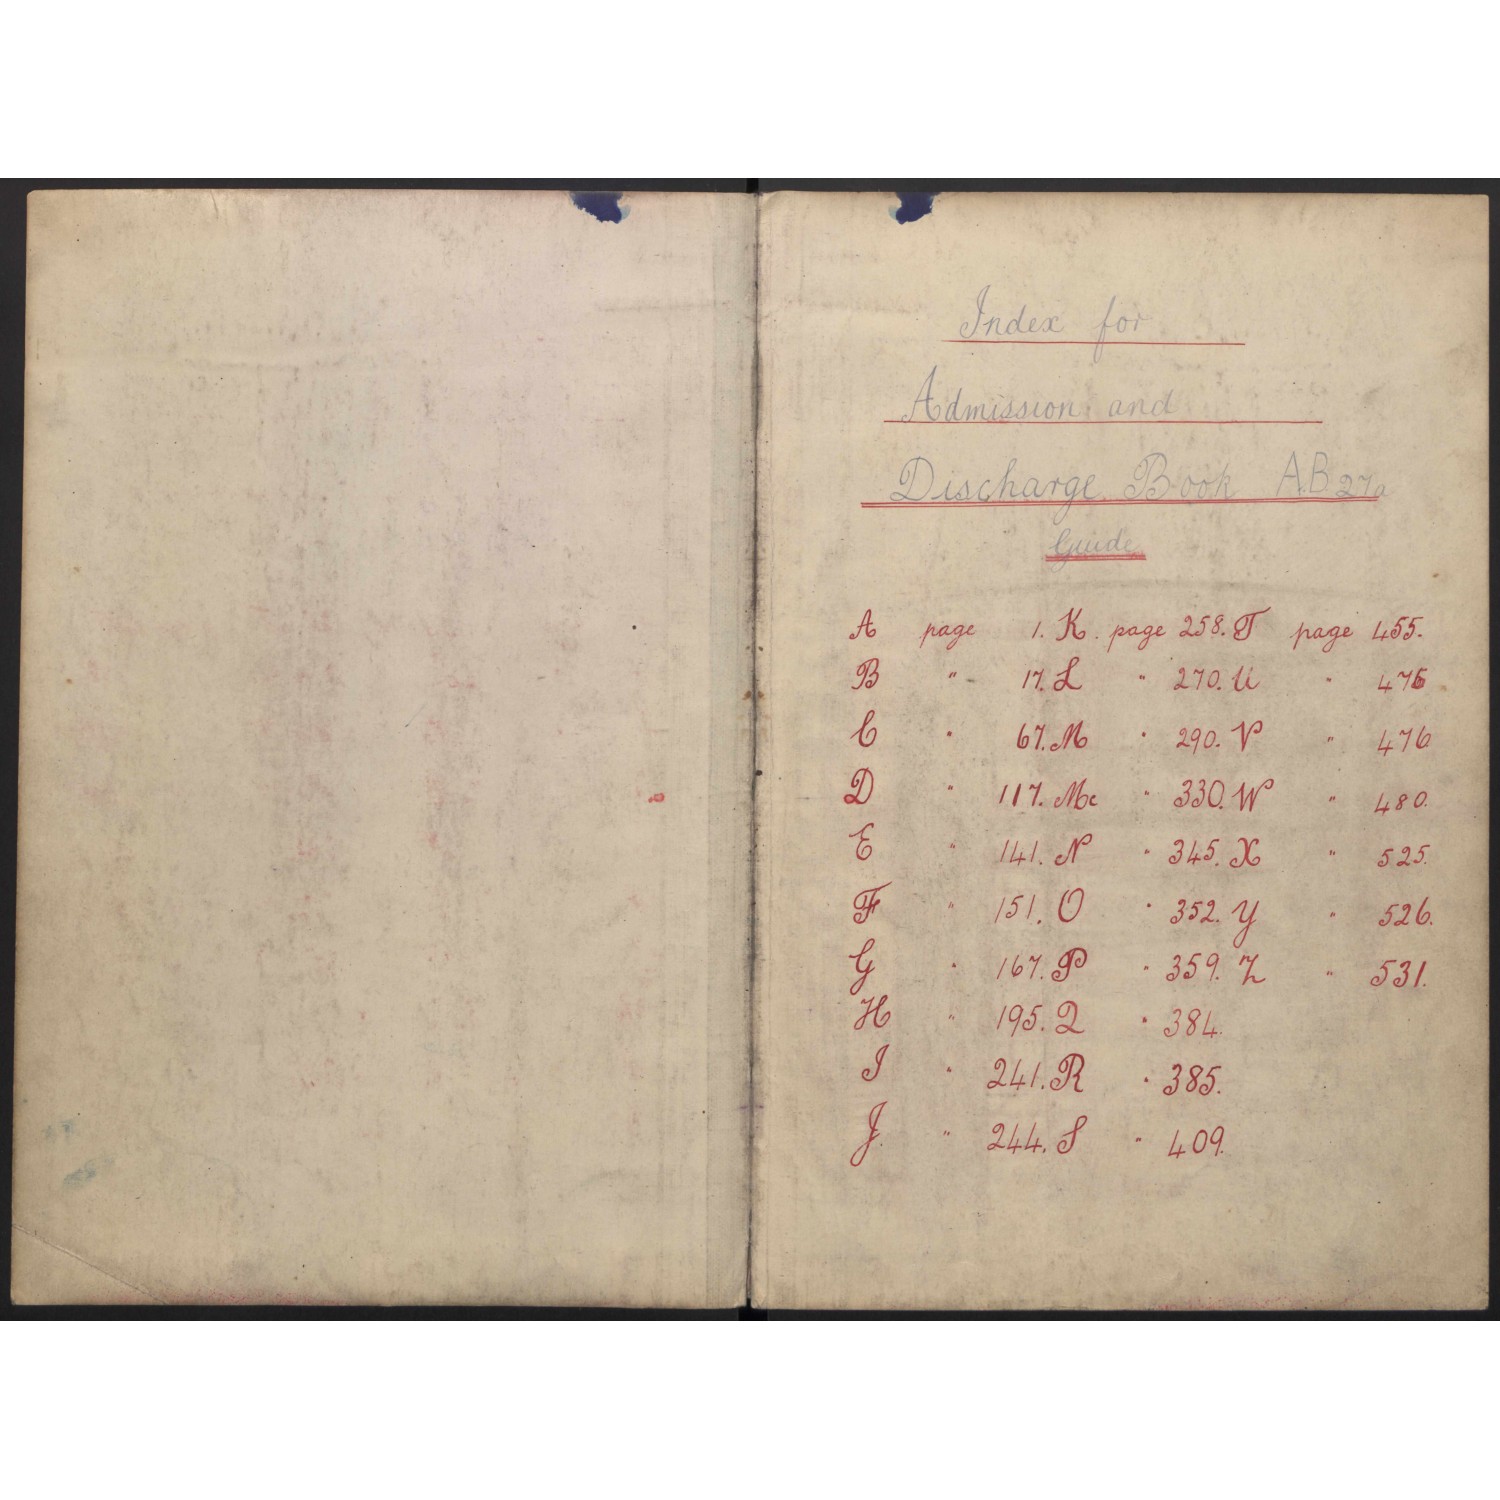 Index for
Admission and
Discharge Book A.B 27a
Guide
A page 1. K. page 258. T page 455.
B " 17. L " 270. U " 475
C " 67. M " 290. V " 476
D " 117. Mc " 330. W " 480.
E " 141. N " 345. X " 525.
F " 151. O " 352. Y " 526.
G " 167. P " 359. Z " 531.
H " 195. Q " 384.
I " 241. R " 385.
J. " 244. S " 409.